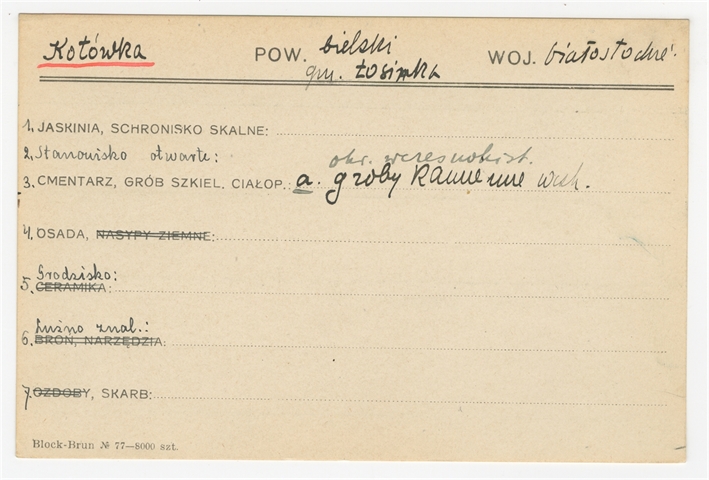 Kotówka POW. bielski WOJ. białostockie
gm. Łosinka
1. JASKINIA, SCHRONISKO SKALNE:
2. Stanowisko otwarte: okr. wczesnohist.
3. CMENTARZ, GRÓB SZKIEL. CIAŁOP.: a. groby kamienne
4. OSADA, NASYPY ZIEMNE:
Grodzisko:
5. CERAMIKA:
Luźno znal.:
6. BROŃ, NARZĘDZIA:
7. OZDOBY, SKARB:
Block-Brun № 77—8000 szt.